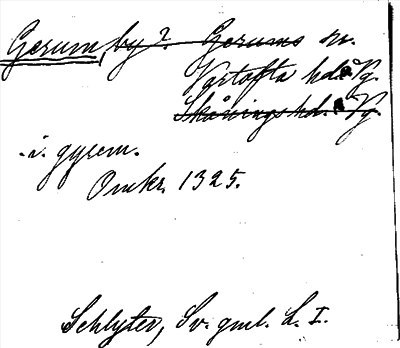 Gerum, by? Gerums sn.
Vartofta hd. Vg.
Skånings hd. Vg.
i. gyrem.
Omkr. 1325.
Schlyter, Sv. gml. L. I.